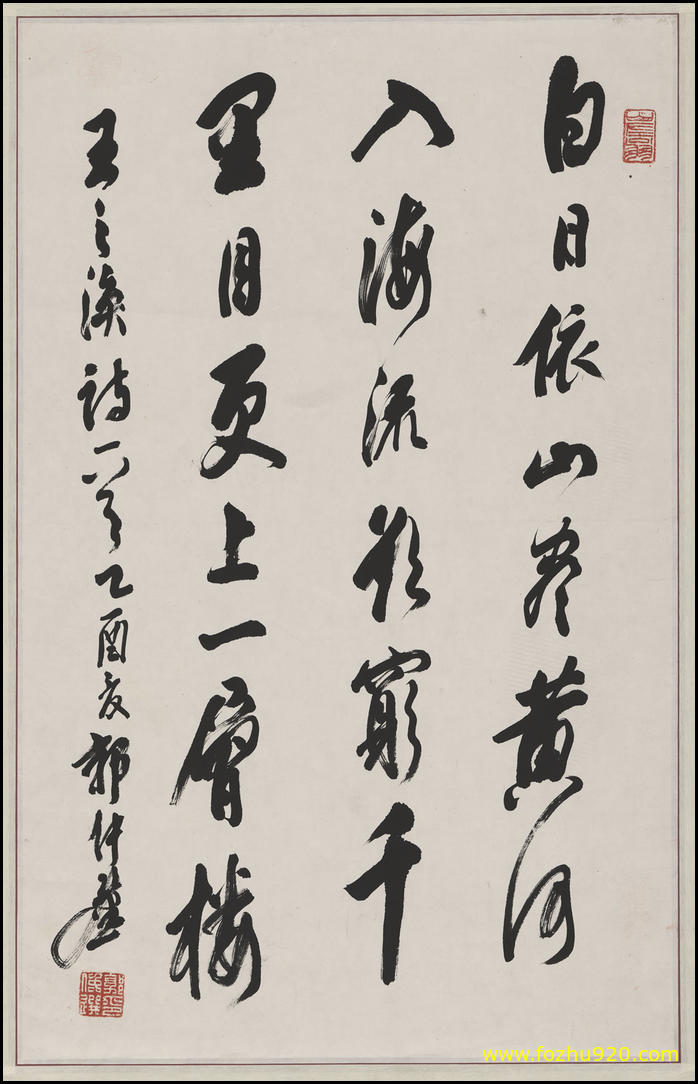 白日依山尽黄河
入海流欲穷千
里目更上一层楼
王之涣诗一首乙酉夏郭仲
www.fozhu920.com